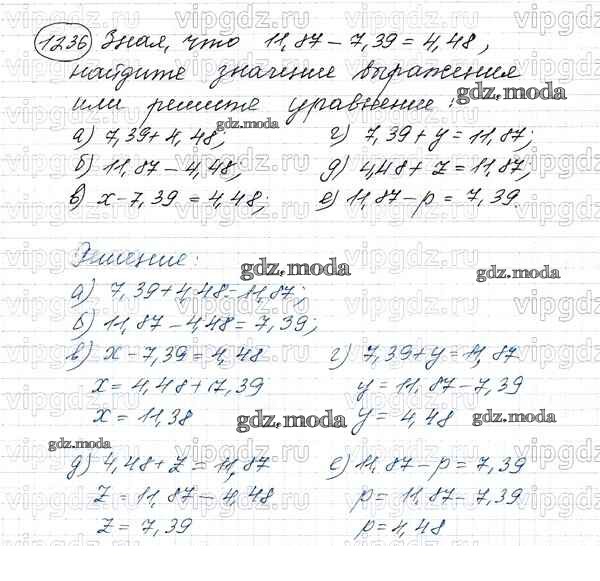 1236 Зная, что 11,87 - 7,39 = 4,48,
найдите значение выражения
или решите уравнение:
а) 7,39 + 4,48;
б) 11,87 - 4,48;
в) x - 7,39 = 4,48;
г) 7,39 + y = 11,87;
д) 4,48 + z = 11,87;
е) 11,87 - p = 7,39.
Решение:
а) 7,39 + 4,48 = 11,87;
б) 11,87 - 4,48 = 7,39;
в) x - 7,39 = 4,48
x = 4,48 + 7,39
x = 11,38
г) 7,39 + y = 11,87
y = 11,87 - 7,39
y = 4,48
д) 4,48 + z = 11,87
z = 11,87 - 4,48
z = 7,39
е) 11,87 - p = 7,39
p = 11,87 - 7,39
p = 4,48
gdz.moda
gdz.moda
gdz.moda
gdz.moda
gdz.moda
gdz.moda
gdz.moda
vipgdz.ru